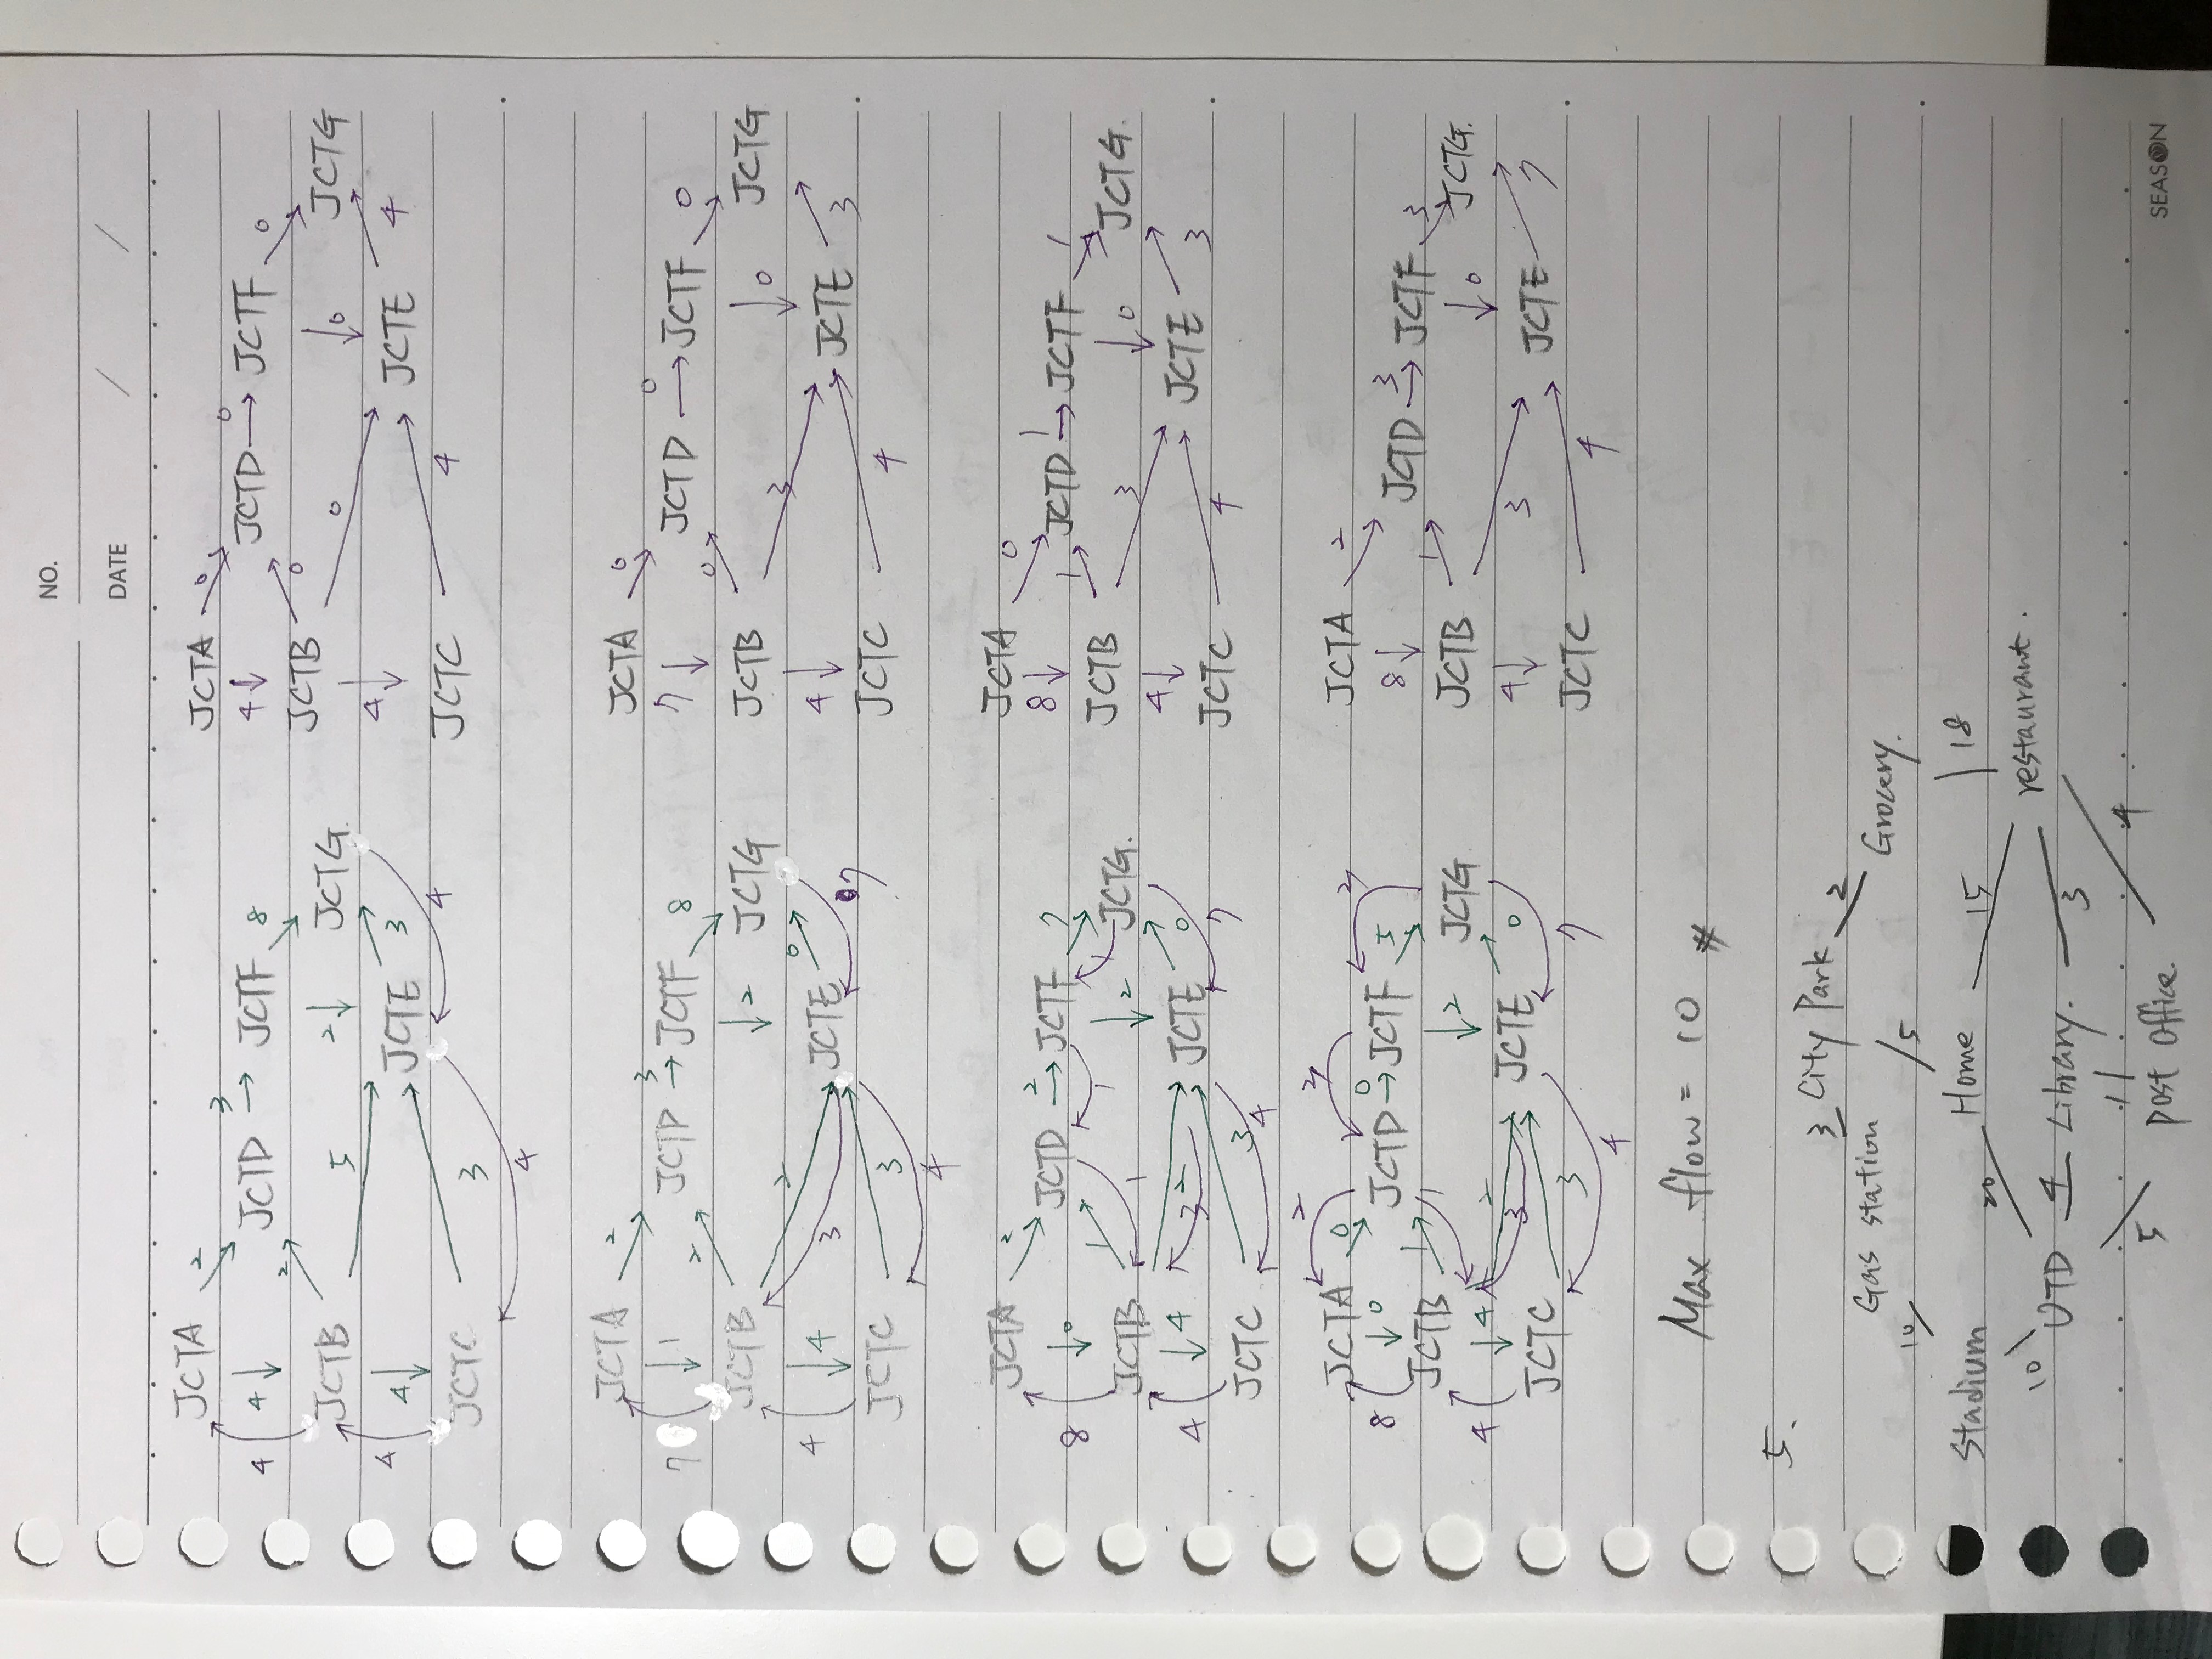 NO.
DATE / /
JCTA 2 JCTD 3 JCTF 8 JCTG
4 4 2 2
JCTB 5 JCTE 3
4 4 4
JCTC 3
4
JCTA 0 JCTD 0 JCTF 0 JCTG
4 0 0
JCTB 0 JCTE 4
4
JCTC 4
JCTA 2 JCTD 3 JCTF 8 JCTG
7 1 2 2
JCTB 2 JCTE 0
4 4 3 7
JCTC 3
4
JCTA 0 JCTD 0 JCTF 0 JCTG
7 0 0
JCTB 3 JCTE 3
4
JCTC 4
JCTA 2 JCTD 2 JCTF 7 JCTG.
8 0 1 1 1 1 2
JCTB 2 3 JCTE 0
4 4 7
JCTC 3
4
JCTA 0 JCTD 1 JCTF 1 JCTG.
8 1 0
JCTB 3 JCTE 3
4
JCTC 4
2 2 2
JCTA 0 JCTD 0 JCTF 5 JCTG
8 0 1 1 2
JCTB 2 3 JCTE 0
4 4 7
JCTC 3
4
JCTA 2 JCTD 3 JCTF 3 JCTG.
8 1 0
JCTB 3 JCTE 7
4
JCTC 4
Max flow = 10 #
5.
3 City Park 2
Gas station Grocery.
10 5
Stadium Home 18
20 15
10 restaurant.
UTD 4 Library. 3
5 11 4
Post Office.
SEASON